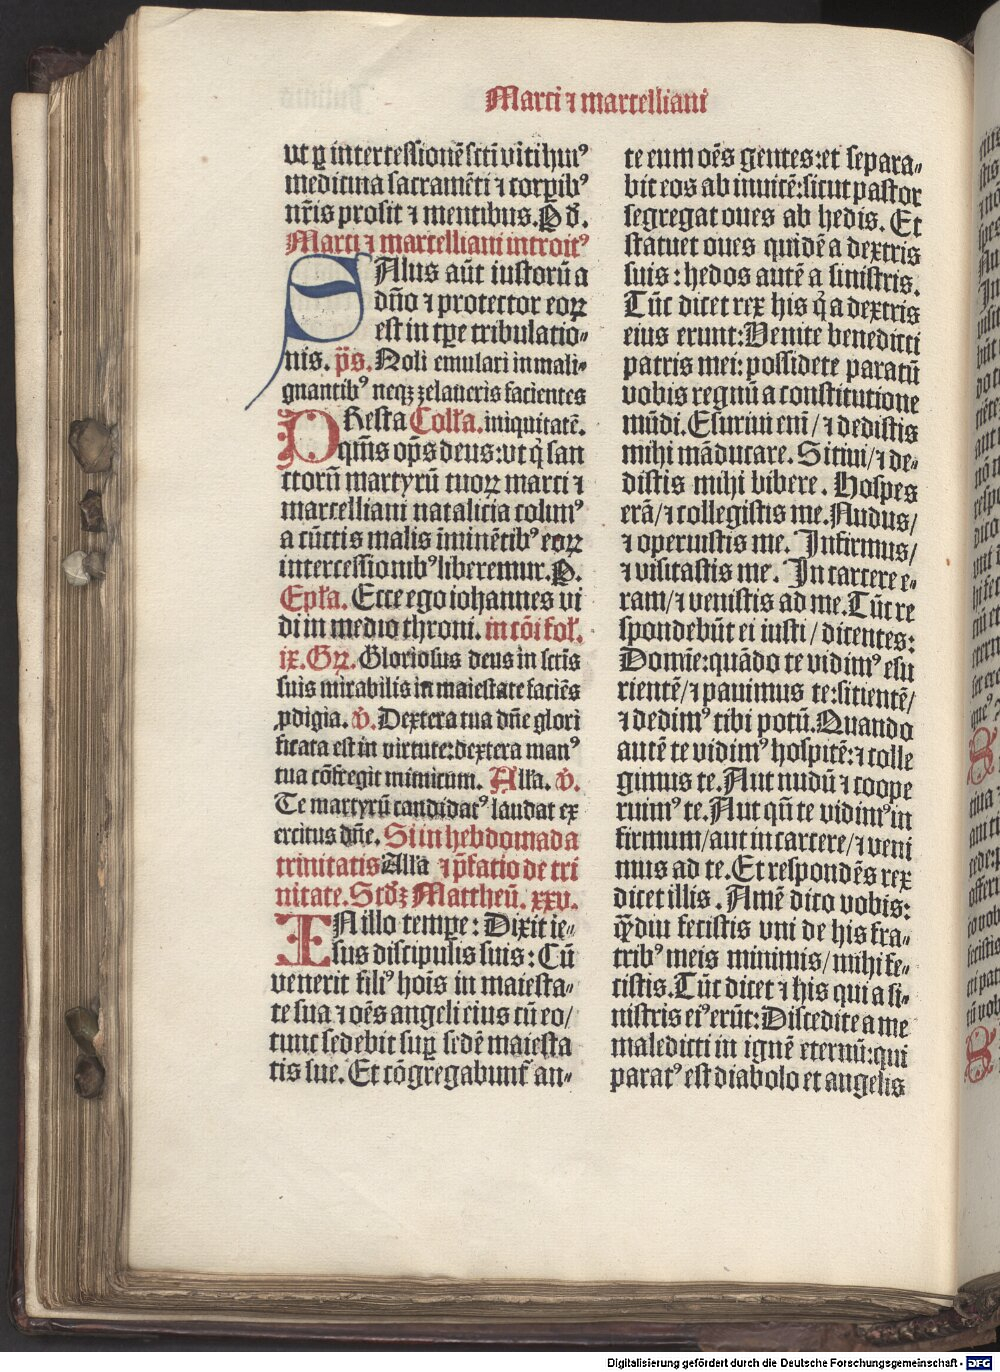 Marci ⁊ marcelliani
vt ꝑ intercessionē scti viti huiꝰ
medicina sacramēti ⁊ corꝑibꝰ
nr̄is prosit ⁊ mentibus. P d̄.
Marci ⁊ marcelliani introitꝰ
SAlus aūt iustorū a
dn̄o ⁊ protector eoꝝ
est in tꝑe tribulatio-
nis. p̄s. Noli emulari in mali-
gnantibꝰ neqꝫ zelaueris facientes
PResta Coll'a. iniquitatē.
qm̄s op̄s deus: vt q̇ san
ctorū martyrū tuoꝝ marci ⁊
marcelliani natalicia colimꝰ
a cūctis malis īminētibꝰ eoꝝ
intercessionibꝰ liberemur. P.
Epl'a. Ecce ego iohannes vi
di in medio throni. in cōi fol'.
ix. Gꝝ. Gloriosus deus in sctīs
suis mirabilis in maiestate faciēs
ꝓdigia. v̄. Dextera tua dn̄e glori
ficata est in virtute: dextera manꝰ
tua cōfregit inimicum. Alla. v̄.
Te martyrū candidatꝰ laudat ex
ercitus dn̄e. Si in hebdomada
trinitatis Alla ⁊ p̄fatio de tri
nitate. Scd̄ꝫ Mattheū. xxv.
IN illo tempe: Dixit ie-
sus discipulis suis: Cū
venerit filiꝰ hoīs in maiesta-
te sua ⁊ oēs angeli eius cū eo/
tunc sedebit suꝑ sedē maiesta
tis sue. Et cōgregabunt̄ an-
te eum oēs gentes: et separa-
bit eos ab inuicē: sicut pastor
segregat oues ab hedis. Et
statuet oues quidē a dextris
suis: hedos autē a sinistris.
Tūc dicet rex his q̇ a dextris
eius erunt: Venite benedicti
patris mei: possidete paratū
vobis regnū a constitutione
mūdi. Esuriui eni̅/ ⁊ dedistis
mihi māducare. Sitiui/ ⁊ de-
distis mihi bibere. Hospes
erā/ ⁊ collegistis me. Nudus/
⁊ operuistis me. Infirmus/
⁊ visitastis me. In carcere e-
ram/ ⁊ venistis ad me. Tūc re
spondebūt ei iusti/ dicentes:
Domīe: quādo te vidimꝰ esu
rientē/ ⁊ pauimus te: sitientē/
⁊ dedimꝰ tibi potū. Quando
autē te vidimꝰ hospitē: ⁊ colle
gimus te. Aut nudū ⁊ coope
ruimꝰ te. Aut qn̄ te vidimꝰ in
firmum/ aut in carcere/ ⁊ veni
mus ad te. Et respondēs rex
dicet illis. Amē dico vobis:
q̄diu fecistis vni de his fra-
tribꝰ meis minimis/ mihi fe-
cistis. Tūc dicet ⁊ his qui a si-
nistris eiꝰ erūt: Discedite a me
maledicti in ignē eternū: qui
paratꝰ est diabolo et angelis
Digitalisierung gefördert durch die Deutsche Forschungsgemeinschaft - DFG